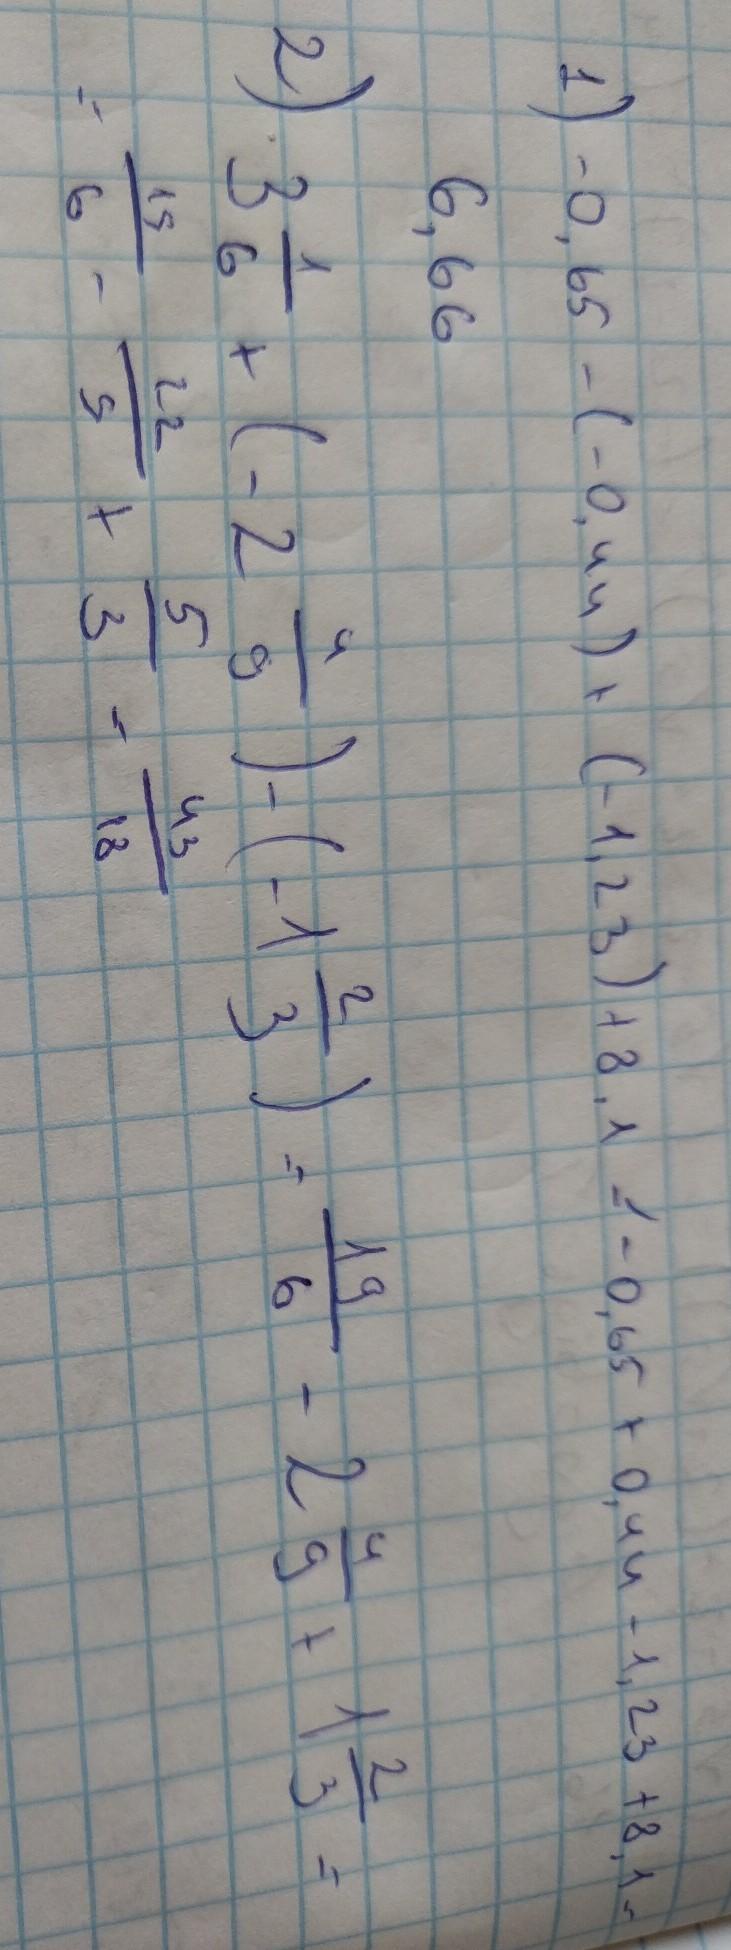 1) -0,65 -(-0,44)+ (-1,23)+8,1 = -0,65 + 0,44 - 1,23 +8,1 =
6,66
2) 3 1/6 + (-2 4/9) - (-1 2/3) = 19/6 - 2 4/9 + 1 2/3 =
= 19/6 - 22/9 + 5/3 = 43/18